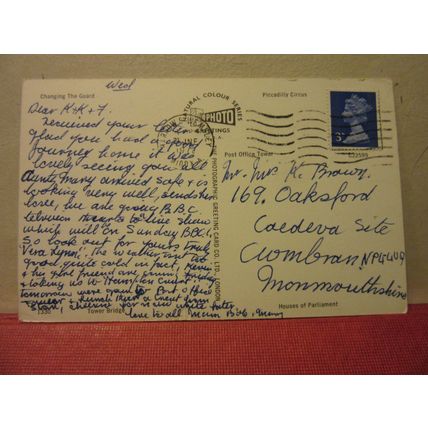 Wed
Changing The Guard
Piccadilly Circus
Dear K+K+F.
Received your letter
glad you had a good
journey home it was
lovely seeing you all
Aunty Mary arrived safe & is
looking very well, sends her
love, we are going B.B.C.
television theatre to see show
which will be on Sunday BBC1.
So look out for yours truly
Vera Lynn. The weather isnt too
good quite cold in fact,
& his girl friend are
taking us to Hampton Court
Tomorrow were going to
love to all Mum Bob, Mary
1330
Tower Bridge
NATURAL COLOUR SERIES
PHOTO
GREETINGS
PHOTOGRAPHIC GREETING CARD CO. LTD., LONDON
3
Post Office Tower
Mr. Mrs K. Brown.
169. Oaksford
Coedeva Site
Cwmbran
Monmouthshire
Houses of Parliament